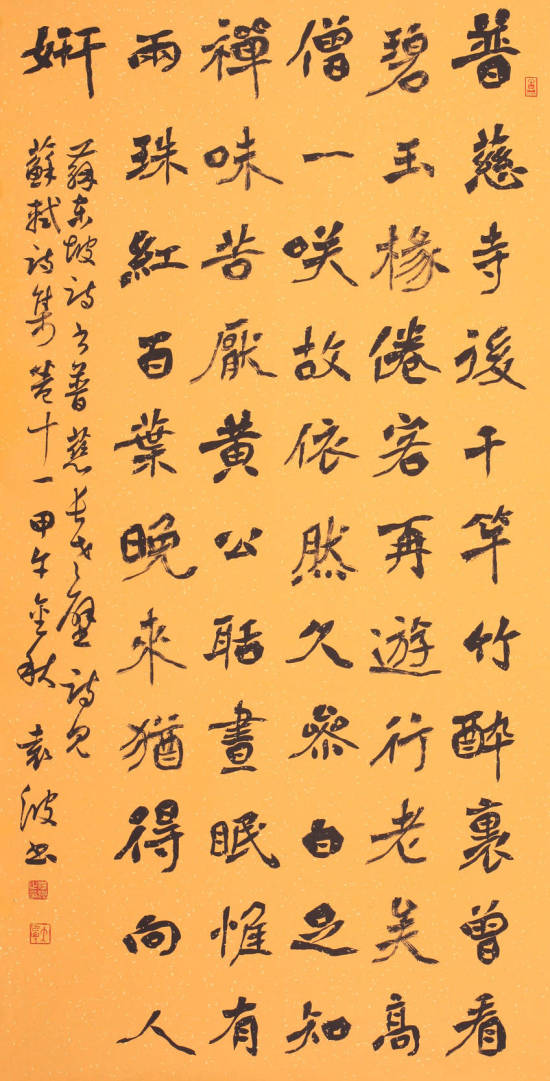 普慈寺後千竿竹醉裏曾看
碧玉椽倦客再遊行老美高
僧一咲故依然久參白足知
禪味苦厭黃公聒晝眠惟有
兩珠紅百葉晚來猶得向人
妍
蘇東坡詩書普慈長老壁詩見
蘇軾詩集卷十一甲午金秋 袁波書